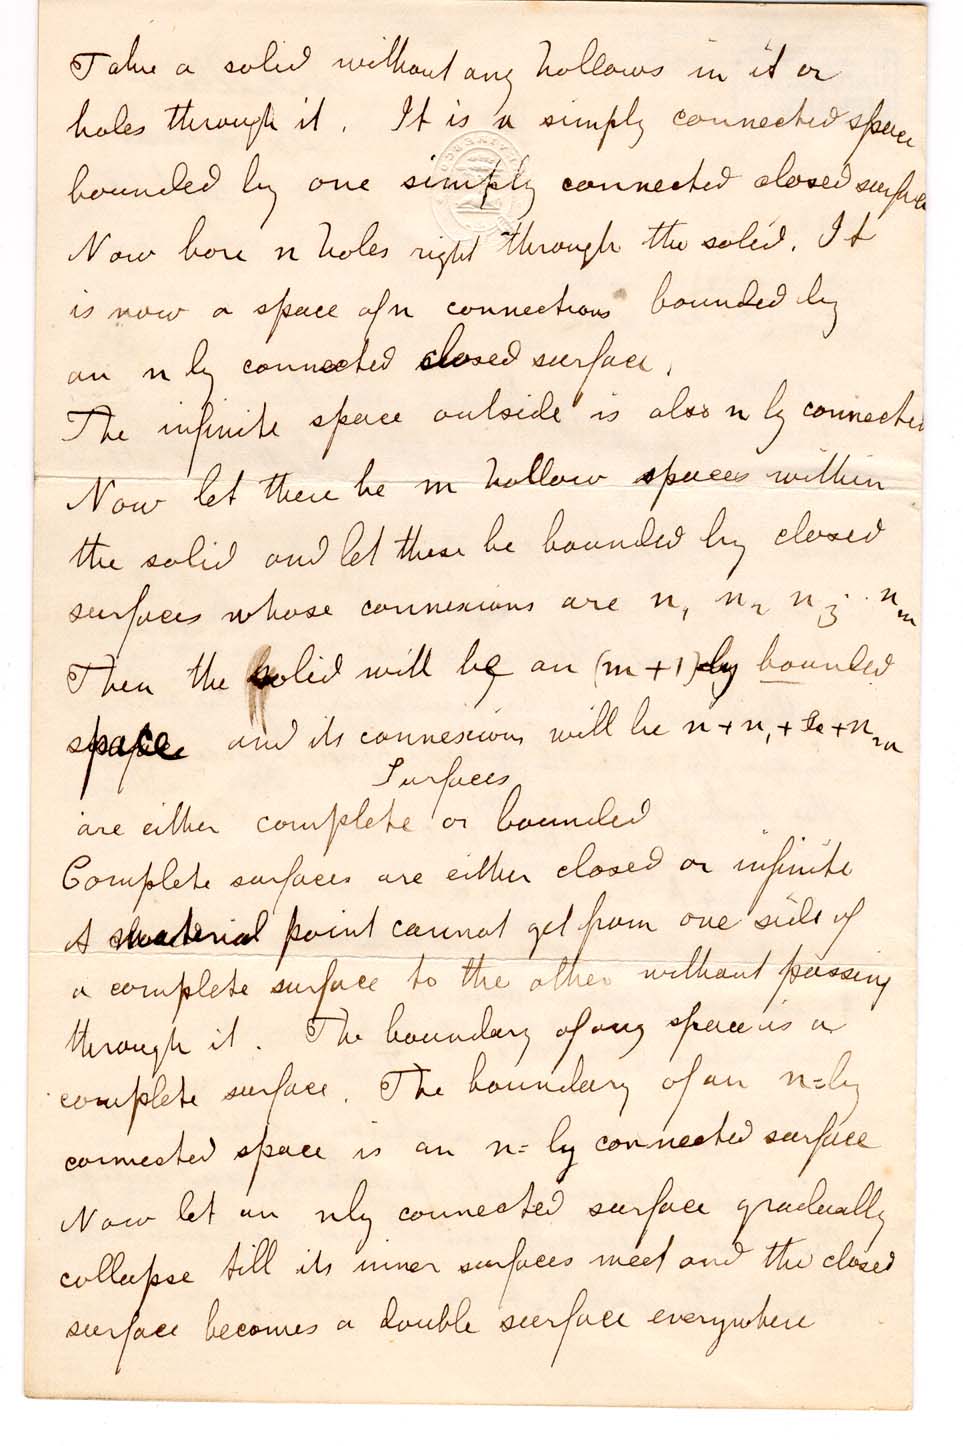 Take a solid without any hollows in it or
holes through it. It is a simply connected space
bounded by one simply connected closed surface
Now bore n holes right through the solid. It
is now a space of n connections bounded by
an n ly connected closed surface.
The infinite space outside is also n ly connected
Now let there be m hollow spaces within
the solid and let these be bounded by closed
surfaces whose connexions are n₁ n₂ n₃ · nₘ
Then the solid will be an (m+1)ly bounded
space and its connexions will be n + n₁ + &c + nₘ
Surfaces
are either complete or bounded
Complete surfaces are either closed or infinite
A material point cannot get from one side of
a complete surface to the other without passing
through it. The boundary of any space is a
complete surface. The boundary of an n=ly
connected space is an n=ly connected surface
Now let an nly connected surface gradually
collapse till its inner surfaces meet and the closed
surface becomes a double surface everywhere